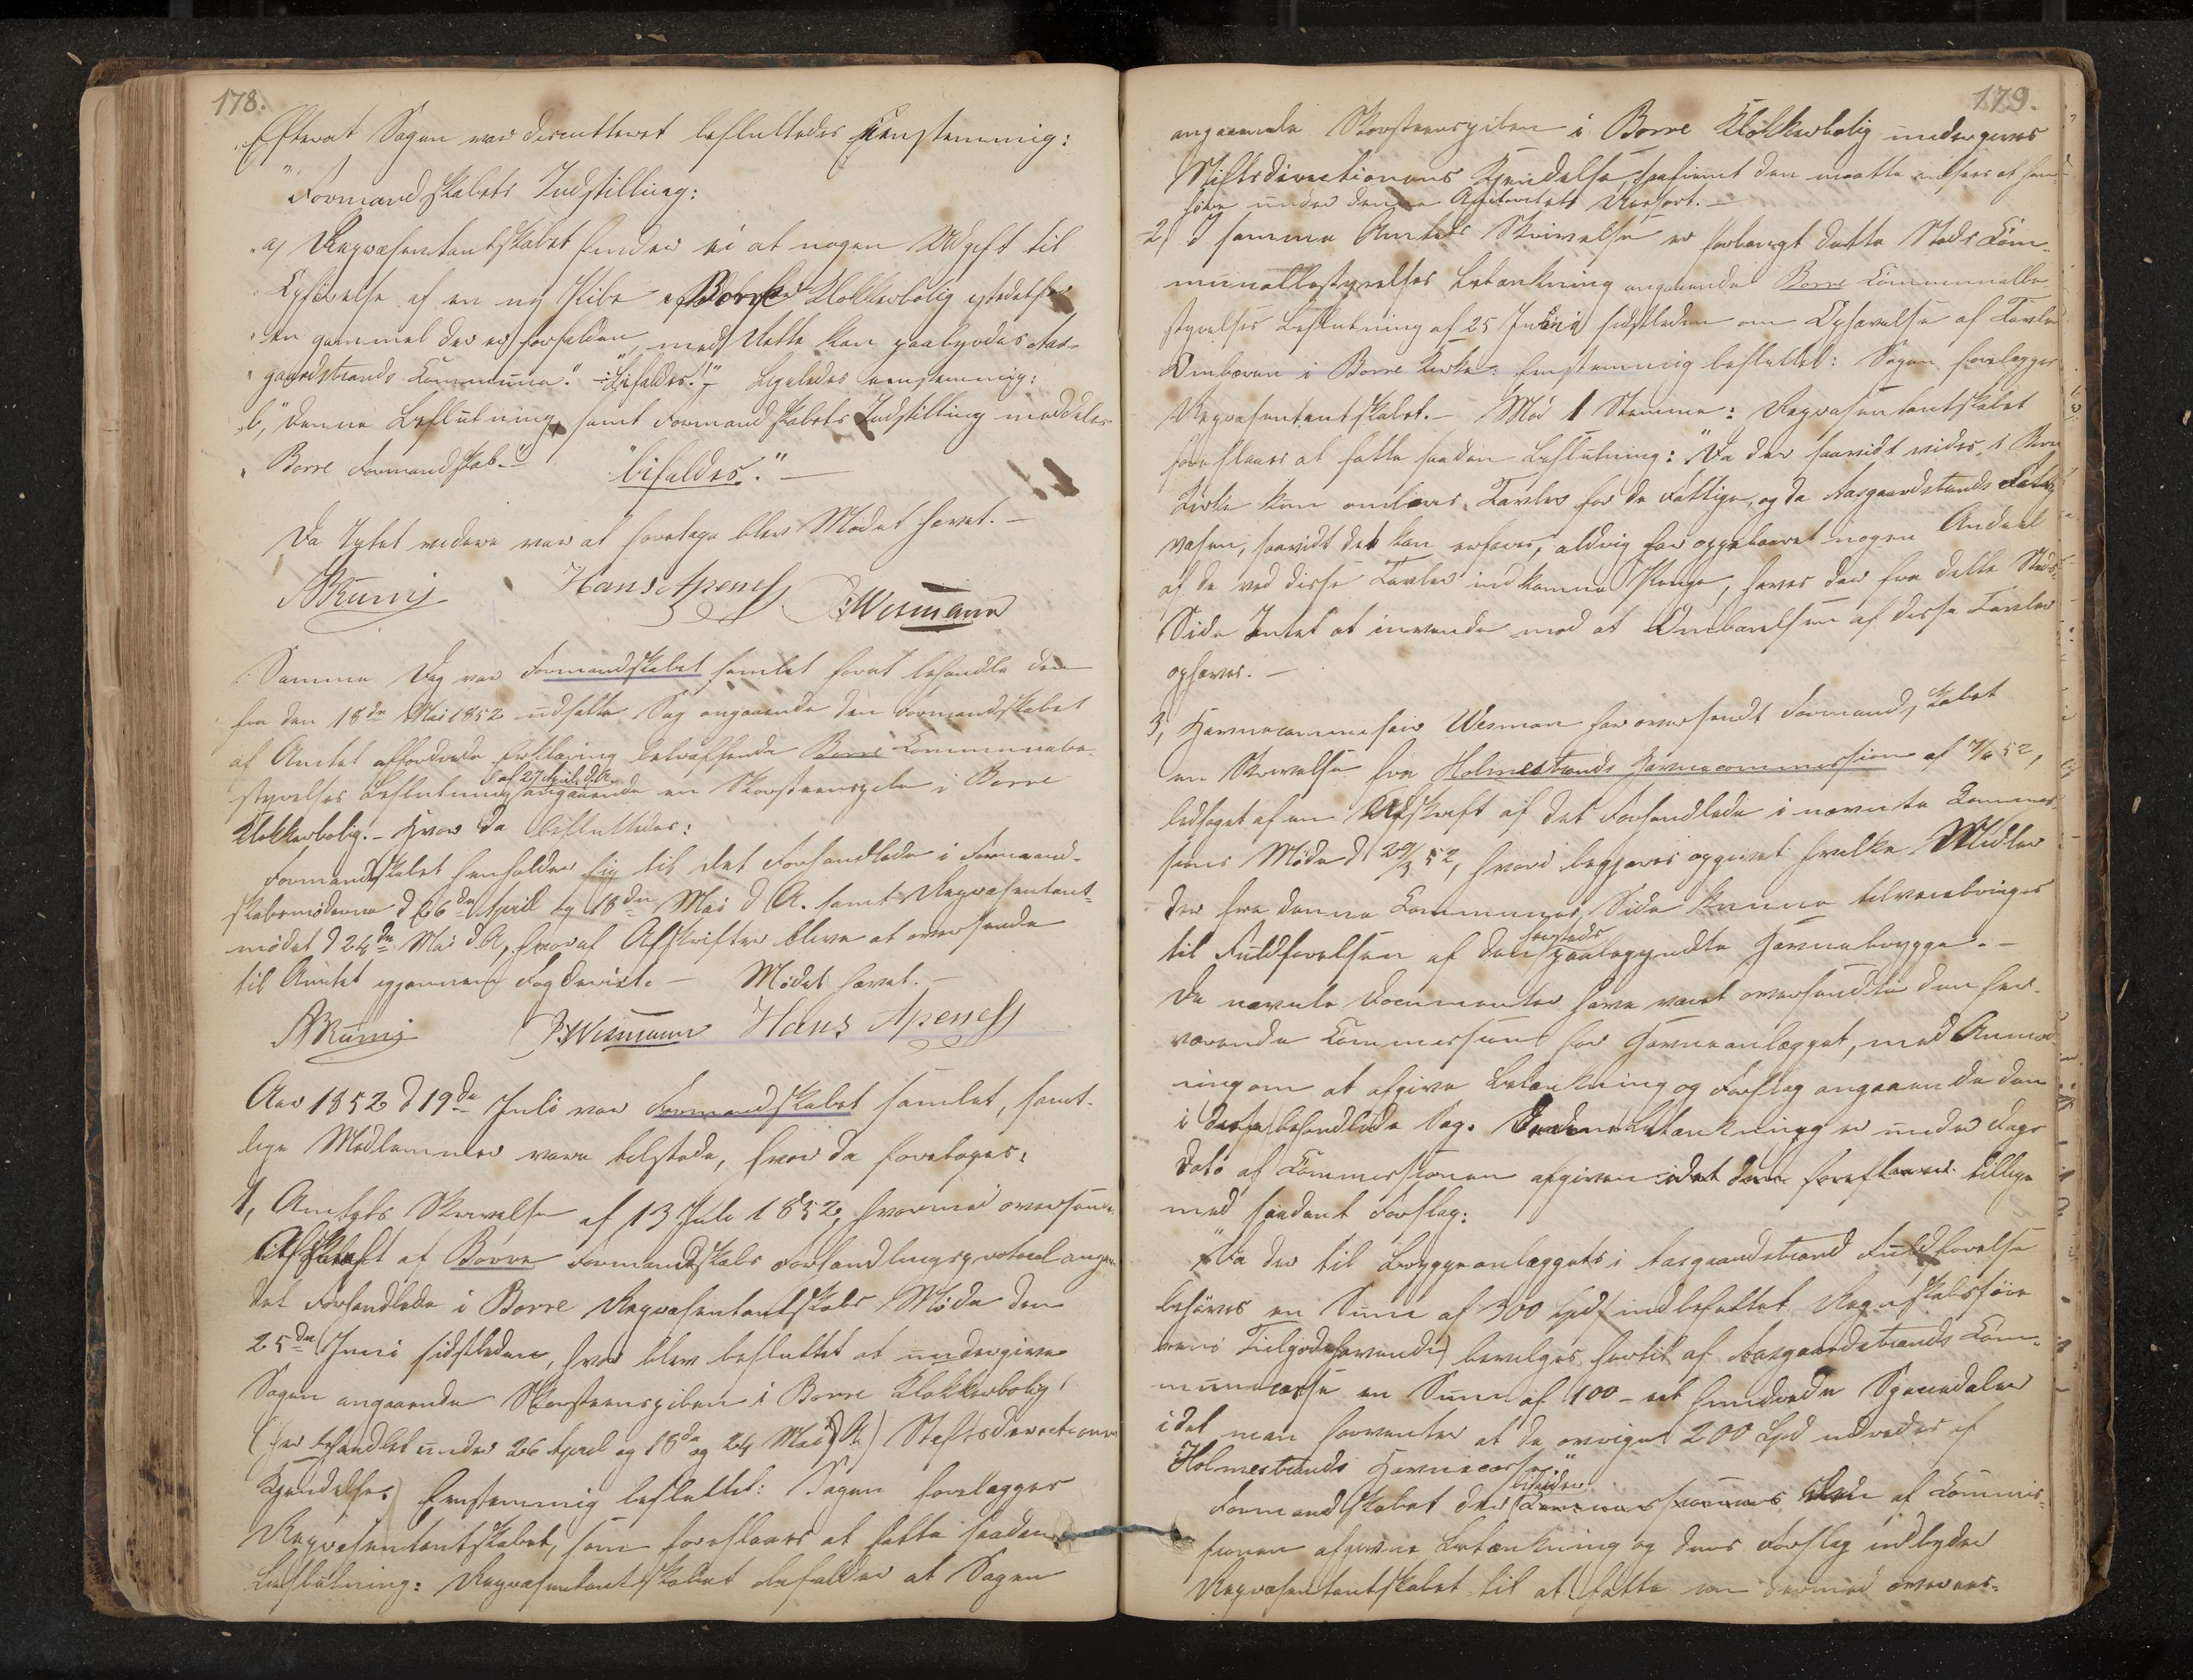 178.
Efterat Sagen var discutteret besluttedes Eenstemmig:
"Formandskabets Indstilling:
"a) Repræsentantskabet finder ei at nogen Udgift til
Opførelse af en ny Pibe af Borre Klokkerbolig istedetfor
"en gammel der er forfalden, med Rette kan paabyrdes Aas-
"gaardstrands Commune." - "Bifaldes!" Ligeledes eenstemmig:
"b, "Denne Beslutning samt Formandskabets Indstilling meddeles
"Borre Formandskab." "bifaldes." -
Da Intet videre var at foretage blev Mødet hævet. -
Hans Apenes Wismann
Samme Dag var Formandskabet samlet forat behandle den
fra den 18de Mai 1852 udsatte Sag angaaende den Formandskabet
af Amtet affordrede Erklæring betræffende Borre Communebe-
styrelses Beslutning af 27 April d. A. angaaende en Skorsteenspibe i Borre
Klokkerbolig. - Hvor da besluttedes:
Formandskabet henholder sig til det Forhandlede i Formand-
skabsmøderne d 26de April og 18de Mai d. A. samt Repræsentant-
mødet d 24de Mai d. A, hvoraf Afskrifter blive at oversende
til Amtet igjennem Fogderiet. - Mødet hævet. -
Wismann Hans Apenes
Aar 1852 d 19de Juli var Formandskabet samlet, samt-
lige Medlemmer vare tilstede, hvor da foretoges:
1, Amtets Skrivelse af 13 Juli 1852, hvormed oversendes
Afskrift af Borre Formandskabs Forhandlingsprotocol angaaende
det Forhandlede i Borre Repræsentantskabs Møde den
25de Juni sidstleden, hvor blev besluttet at undergive
Sagen angaaende Skorsteenspiben i Borre Klokkerbolig
(her behandlet under 26 April og 18de og 24 Mai d. A.) Stiftsdirectionens
Kjendelse. Eenstemmig besluttet: Sagen forelægges
Repræsentantskabet, som foreslaaes at fatte saadan
Beslutning: Repræsentantskabet bifalder at Sagen
179.
angaaende Skorsteenspiben i Borre Klokkerbolig undergives
Stiftsdirectionens Kjendelse, saafremt den maatte ansees at hen-
høre under denne Autoritets Ressort. -
2, I samme Amtets Skrivelse er forlangt dette Steds Com-
munebestyrelses Betænkning angaaende Borre Communebe-
styrelses Beslutning af 25 Juni sidstleden om Ophævelse af Tavlers
Ombæren i Borre Kirke: Eenstemmig besluttet: Sagen forelægges
Repræsentantskabet. - Mod 1 Stemme: Repræsentantskabet
foreslaaes at fatte saadan Beslutning: "Da der saavidt vides, i Borre
Kirke kun ombæres Tavler for de Fattige, og da Aasgaardstrands Fattig-
væsen, saavidt det kan erfares, aldrig har oppebaaret nogen Andeel
af de ved disse Tavler indkomne Penge, haves der fra dette Steds
Side Intet at invende mod at Ombærelsen af disse Tavler
ophæves. -
3, Havnecommissair Wesman har oversendt Formandskabet
en Skrivelse fra Holmestrands Havnecommission af 7/6 52,
ledsaget af en Afskrift af det Forhandlede i nævnte Commis-
sions Møde d 29/3 52, hvori begjæres opgivet hvilke Midler
der fra denne Communes Side kunne tilveiebringes
til Fuldførelsen af den hersteds paabegyndte Havnebrygge. -
De nævnte Documenter have været oversendte den her-
værende Commission for Havneanlægget, med Anmod-
ning om at afgive Betænkning og Forslag angaaende den
i disse behandlede Sag. Denne Betænkning er under Dags
Dato af Commissionen afgiven idet den foreslaaer tillige
med saadant Forslag:
"Da der til Bryggeanlæggets i Aasgaardstrand Fuldførelse
behøves en Sum af 300 Spd indbefattet Regnskabsføre-
rens Tilgodehavende) bevilges hertil af Aasgaardstrands Com-
munecasse en Sum af 100 - eet hundrede Speciedaler
idet man forventer at de øvrige 200 Spd udredes af
Holmestrands Havnecasse."
Formandskabet der bifalder den af Commis-
sionen afgivne Betænkning og dens Forslag indbyder
Repræsentantskabet til at fatte en dermed overeens-